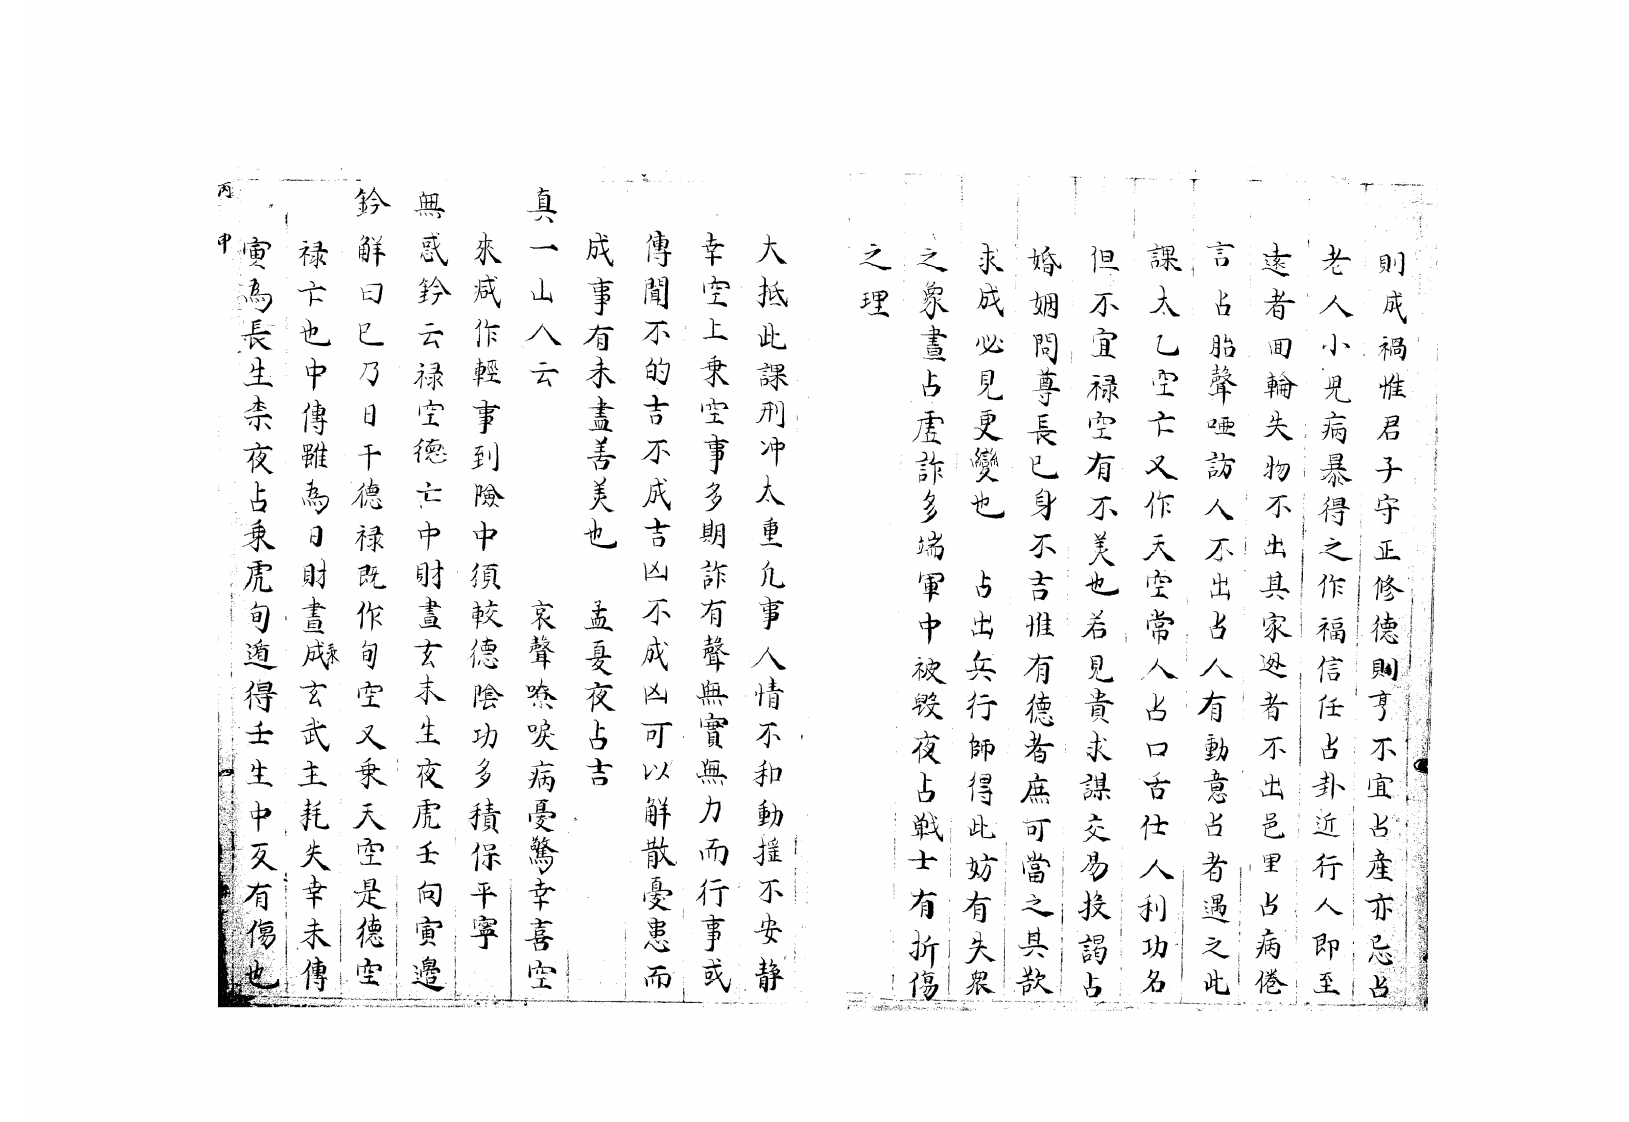 則成禍惟君子守正修德則亨不宜占產亦忌占
老人小兒病暴得之作福信任占卦近行人即至
遠者回輪失物不出其家逃者不出邑里占病倦
言占胎聲啞訪人不出占人有動意占者遇之此
課太乙空亡又作天空常人占口舌仕人利功名
但不宜祿空有不美也若見貴求謀交易投謁占
婚姻問尊長已身不吉惟有德者庶可當之其歆
求成必見更變也　占出兵行師得此妨有失衆
之象晝占虛詐多端軍中被毀夜占戰士有折傷
之理
大抵此課刑冲太重凢事人情不和動搖不安靜
幸空上乘空事多期詐有聲無實無力而行事或
傳聞不的吉不成吉凶不成凶可以解散憂患而
成事有未盡善美也　孟夏夜占吉
真一山人云　哀聲嘹唳病憂驚幸喜空
來減作輕事到險中須較德陰功多積保平寧
無惑鈐云祿空德亡中財晝玄末生夜虎壬向寅邊
鈐觧曰巳乃日干德祿既作旬空又乘天空是德空
祿亡也中傳雖為日財晝乘玄武主耗失幸末傳
寅為長生柰夜占乘虎旬遁得壬生中反有傷也
丙
申